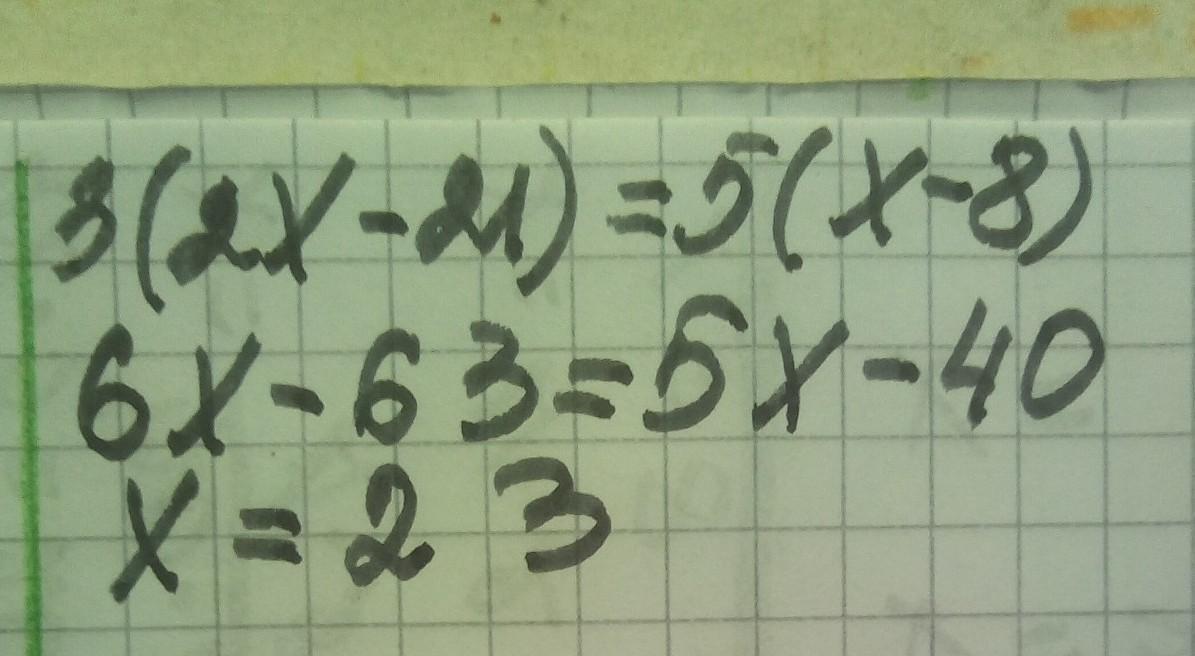 3(2x-21)=5(x-8)
6x-63=5x-40
x=23